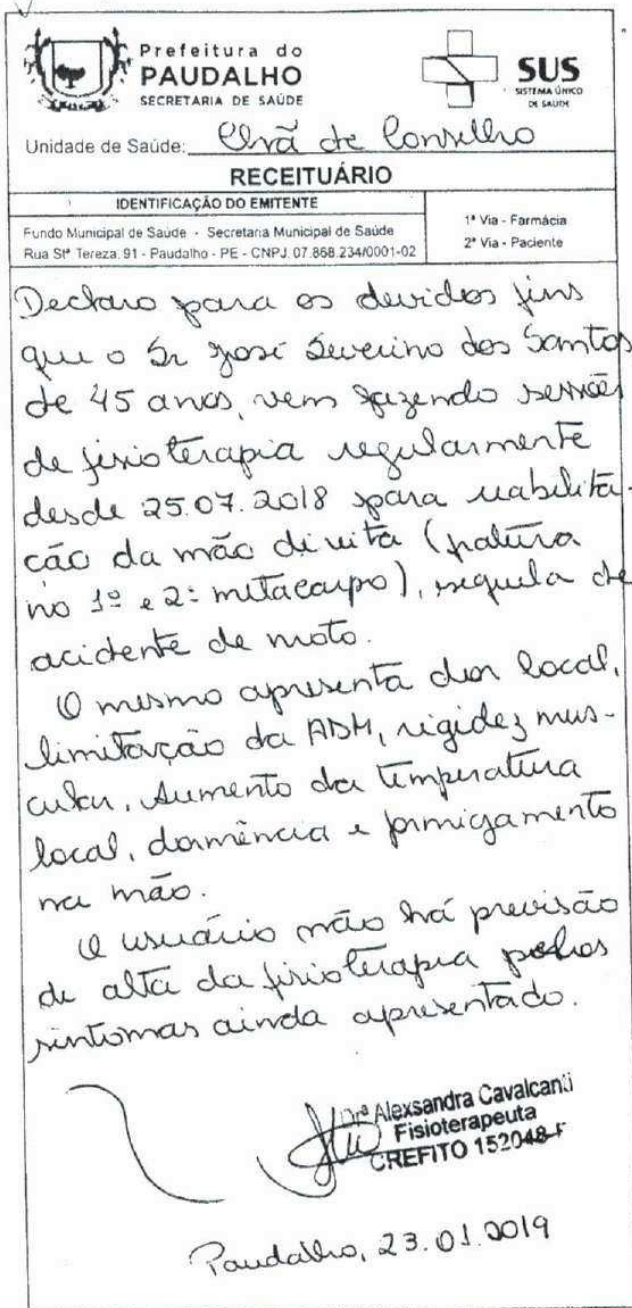 Prefeitura do
PAUDALHO
SECRETARIA DE SAÚDE
SUS
SISTEMA ÚNICO
DE SAÚDE
Unidade de Saúde: Chã de Conselho
RECEITUÁRIO
IDENTIFICAÇÃO DO EMITENTE
Fundo Municipal de Saúde - Secretaria Municipal de Saúde
Rua Stª Tereza, 91 - Paudalho - PE - CNPJ. 07.868.234/0001-02
1ª Via - Farmácia
2ª Via - Paciente
Declaro para os devidos fins
que o Sr José Severino dos Santos
de 45 anos, vem fazendo sessões
de fisioterapia regularmente
desde 25.07.2018 para reabilita-
ção da mão direita (fratura
no 1º e 2º metacarpo), sequela de
acidente de moto.
O mesmo apresenta dor local,
limitação da ADM, rigidez mus-
cular, aumento da temperatura
local, dormência e formigamento
na mão.
O usuário não há previsão
de alta da fisioterapia pelos
sintomas ainda apresentado.
Drª Alexsandra Cavalcanti
Fisioterapeuta
CREFITO 152048-F
Paudalho, 23.01.2019